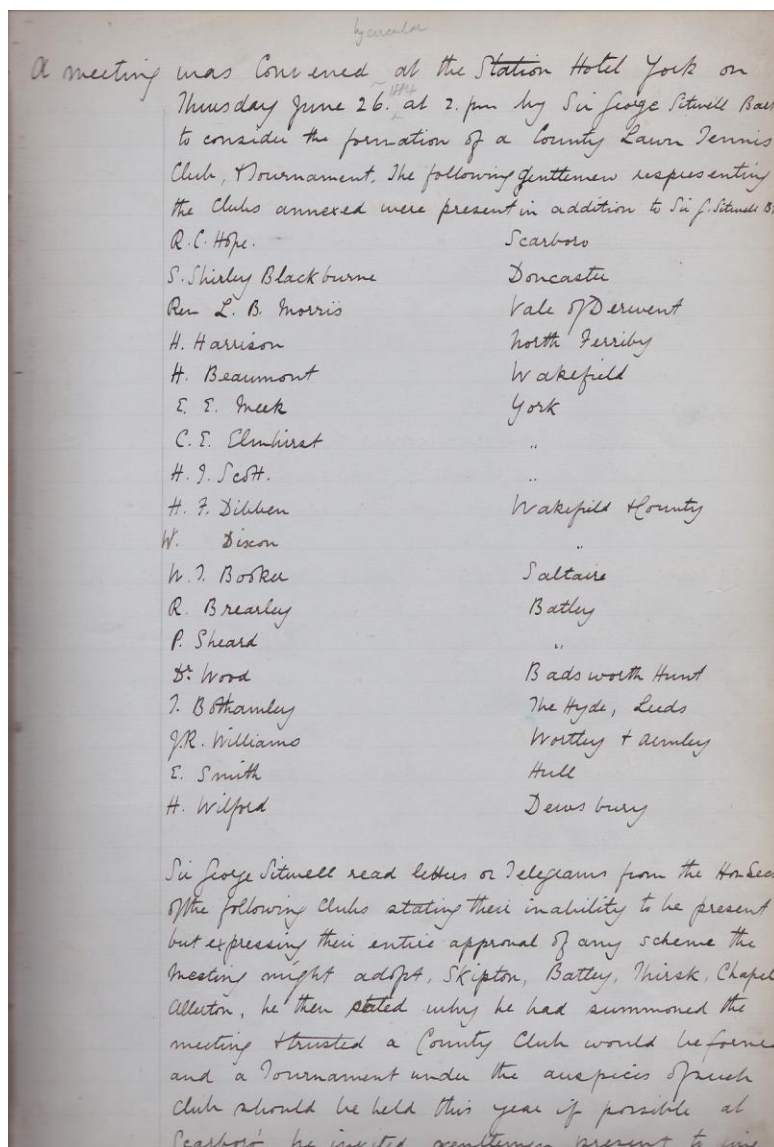 by circular
A meeting was Convened at the Station Hotel York on
Thursday June 26. 1884 at 2. pm by Sir George Sitwell Bart
to consider the formation of a County Lawn Tennis
Club, & Tournament. The following gentlemen respresenting
the Clubs annexed were present in addition to Sir G. Sitwell B
R. C. Hope. Scarboro
S. Shirley Blackburne Doncaster
Rev L. B. Morris Vale of Derwent
H. Harrison North Ferriby
H. Beaumont Wakefield
E. E. Meek York
C. E. Elmhirst "
H. J. Scott. "
H. F. Dibben Wakefield & County
W. Dixon "
W. J. Booker Saltaire
R. Brearley Batley
P. Sheard "
Dr. Wood Badsworth Hunt
T. Bothamley The Hyde, Leeds
J.R. Williams Wortley & Armley
E. Smith Hull
H. Wilford Dewsbury
Sir George Sitwell read letters or Telegrams from the Hon Sec
of the following Clubs stating their inability to be present
but expressing their entire approval of any scheme the
meeting might adopt, Skipton, Batley, Thirsk, Chapel
Allerton, he then stated why he had summoned the
meeting & trusted a County Club would be forme
and a Tournament under the auspices of such
Club should be held this year if possible at
Scarboro', he invited gentlemen present to give